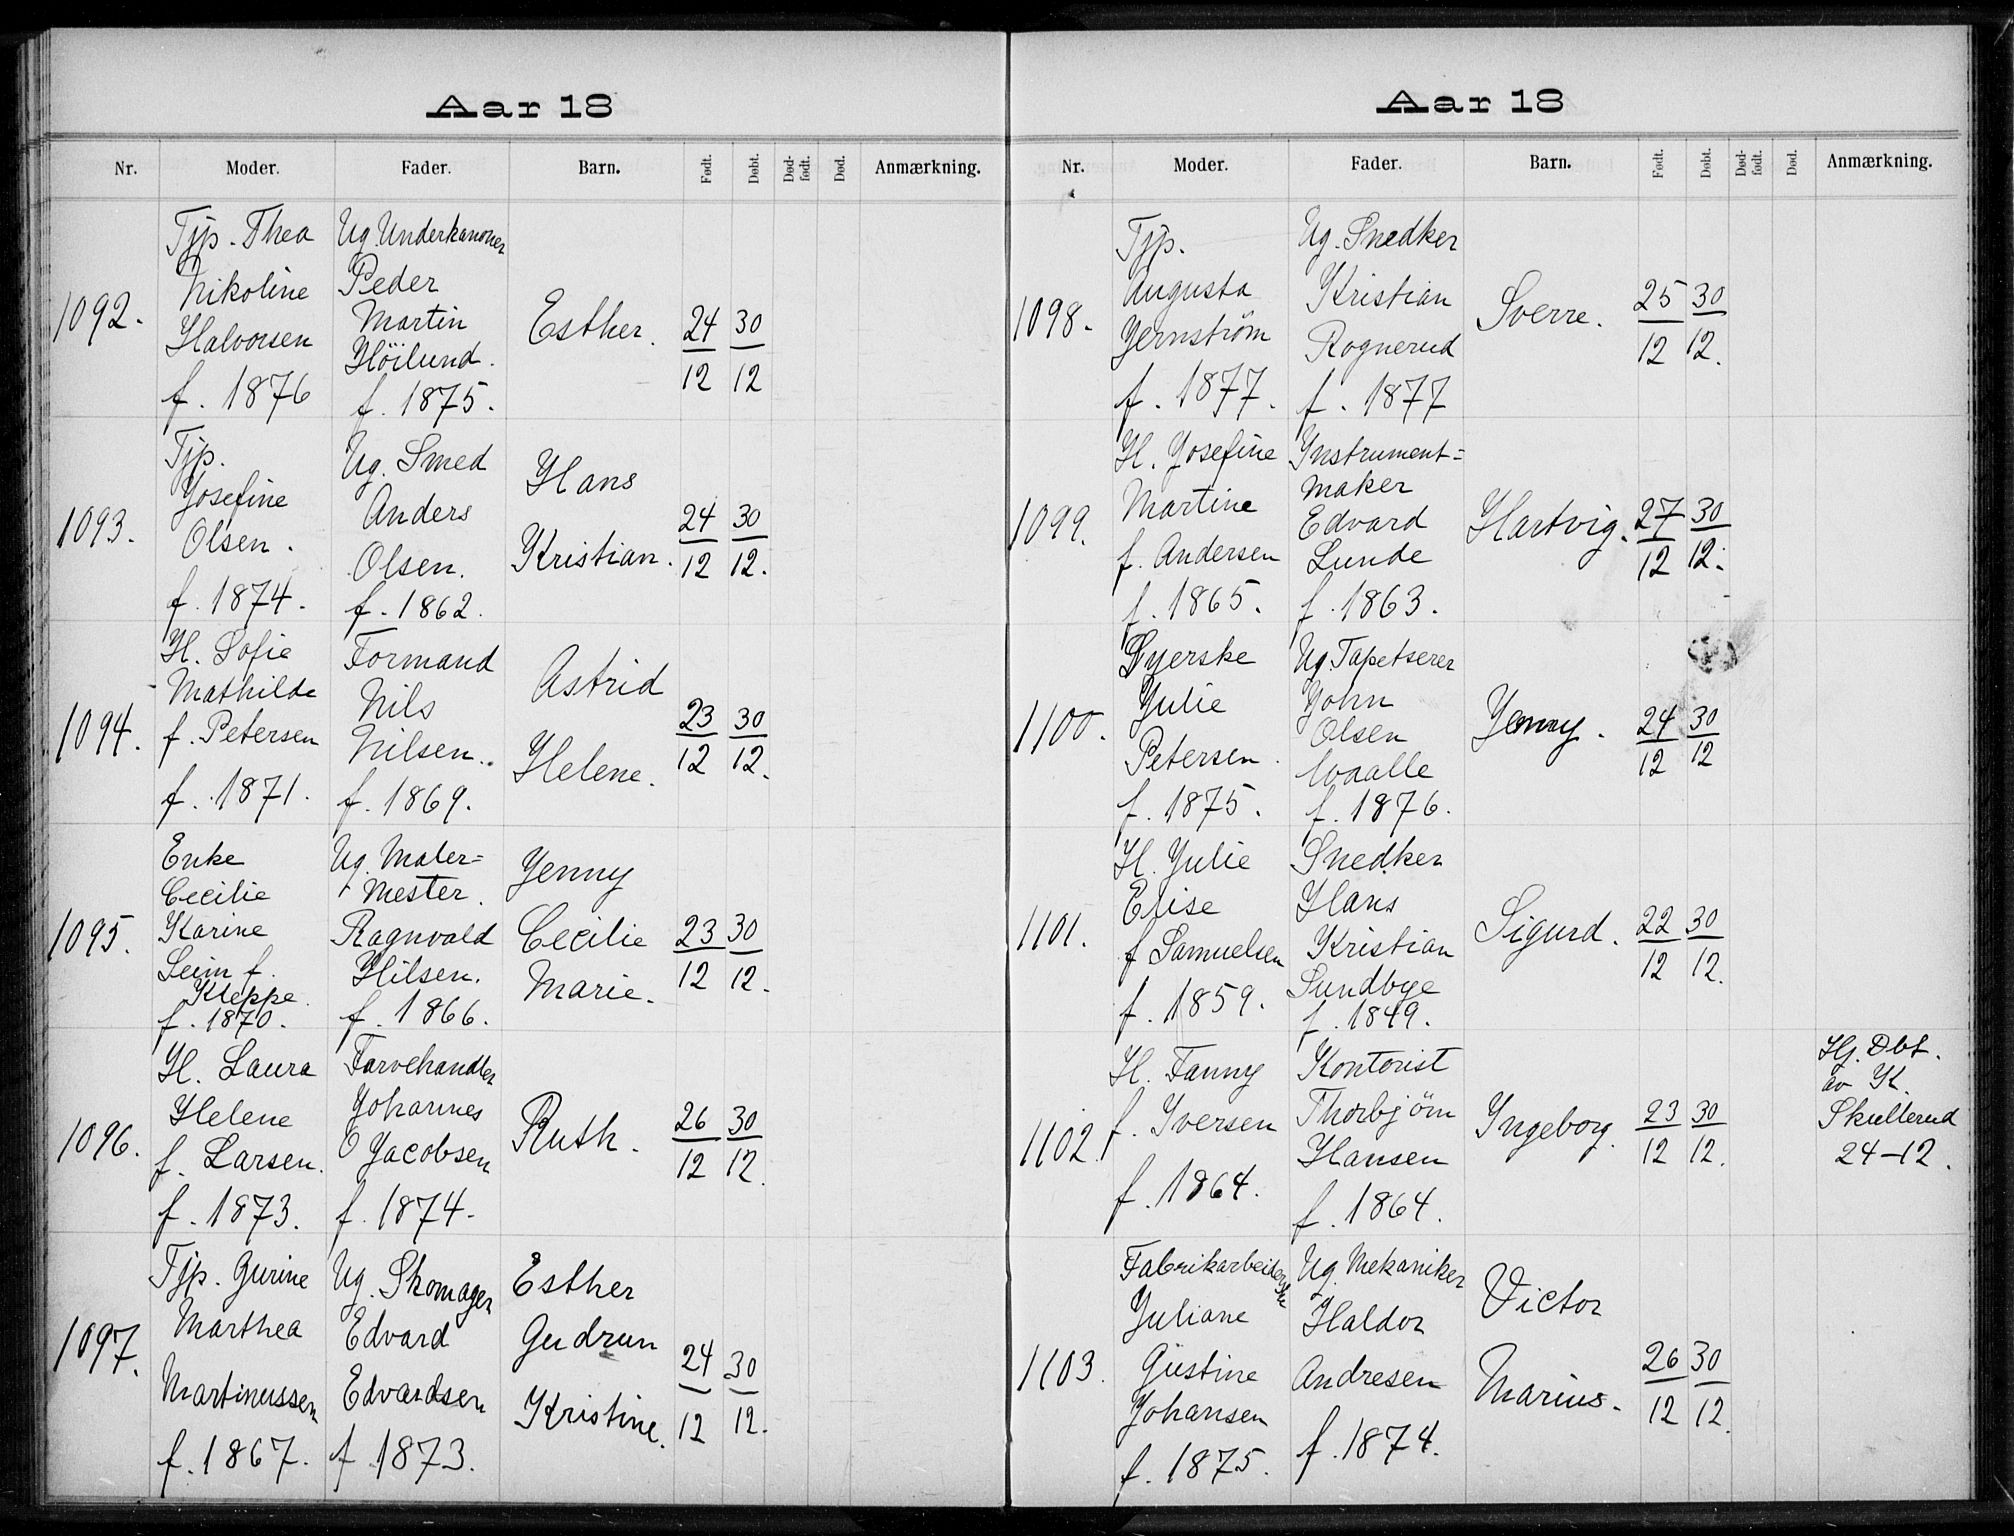 Aar 18
Nr. Moder. Fader. Barn. Født. Døbt. Dødfødt. Død. Anmærkning.
1092. Tjp. Thea Nikoline Halvorsen f. 1876
Ug. Underkanoner Peder Martin Höilund. f. 1875.
Esther. 24/12 30/12
1093. Tjp. Josefine Olsen. f. 1874.
Ug. Smed Anders Olsen. f. 1862.
Hans Kristian. 24/12 30/12.
1094. H. Sofie Mathilde f. Petersen f. 1871.
Formand Nils Nilsen. f. 1869.
Astrid Helene. 23/12 30/12.
1095. Enke Cecilie Karine Seim f. Kleppe. f. 1870.
Ug. Maler= Mester. Ragnvald Hilsen. f. 1866.
Jenny Cecilie Marie. 23/12 30/12.
1096. H. Laura Helene f. Larsen. f. 1873.
Farvehandler Johannes O Jacobsen f. 1874.
Ruth. 26/12 30/12.
1097. Tjp. Gurine Marthea Martinussen f. 1867.
Ug. Skomager Edvard Edvardsen f 1873.
Esther Gudrun Kristine. 24/12 30/12.
Aar 18
Nr. Moder. Fader. Barn. Født. Døbt. Dødfødt. Død. Anmærkning.
1098. Tjp. Augusta Jernström f. 1877.
Ug. Snedker Kristian Rognerud f. 1877
Sverre. 25/12 30/12.
1099. H. Josefine Martine f. Andersen f. 1865.
Instrument= maker Edvard Lunde f. 1863.
Hartvig. 27/12 30/12.
1100. Syerske Julie Petersen. f. 1875.
Ug. Tapetserer John Olsen Waalle f. 1876.
Jenny. 24/12 30/12
1101. H. Julie Elise f Samuelsen f. 1859.
Snedker Hans Kristian Sundbye f. 1849.
Sigurd. 22/12 30/12.
1102. H. Fanny f. Iversen f. 1864.
Kontorist Thorbjörn Hansen f. 1864.
Ingeborg. 23/12 30/12.
Hj. Dbt. av K. Skullerud 24-12.
1103. Fabrikarbeiderske Juliane Gustine Johansen f. 1875.
Ug. Mekaniker Haldor Andresen f. 1874.
Victor Marius. 26/12 30/12.